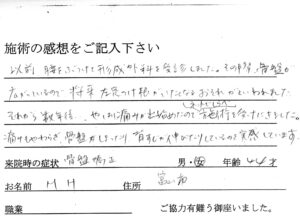 施術の感想をご記入下さい
以前、腰をぶつけて形成外科を受診しました。その時、骨盤が
広がっているので将来左足つけ根がいたくなるおそれがといわれ
それから数年後、やはり痛みが出始めたので施術を受けにきました。
痛みもやわらぎ骨盤がしまったり背すじが伸びたりしているのを実感しています。
来院時の症状 骨盤矯正 男・女 年齢 44才
お名前 M H 住所 富山市
職業 ご協力有難う御座いました。